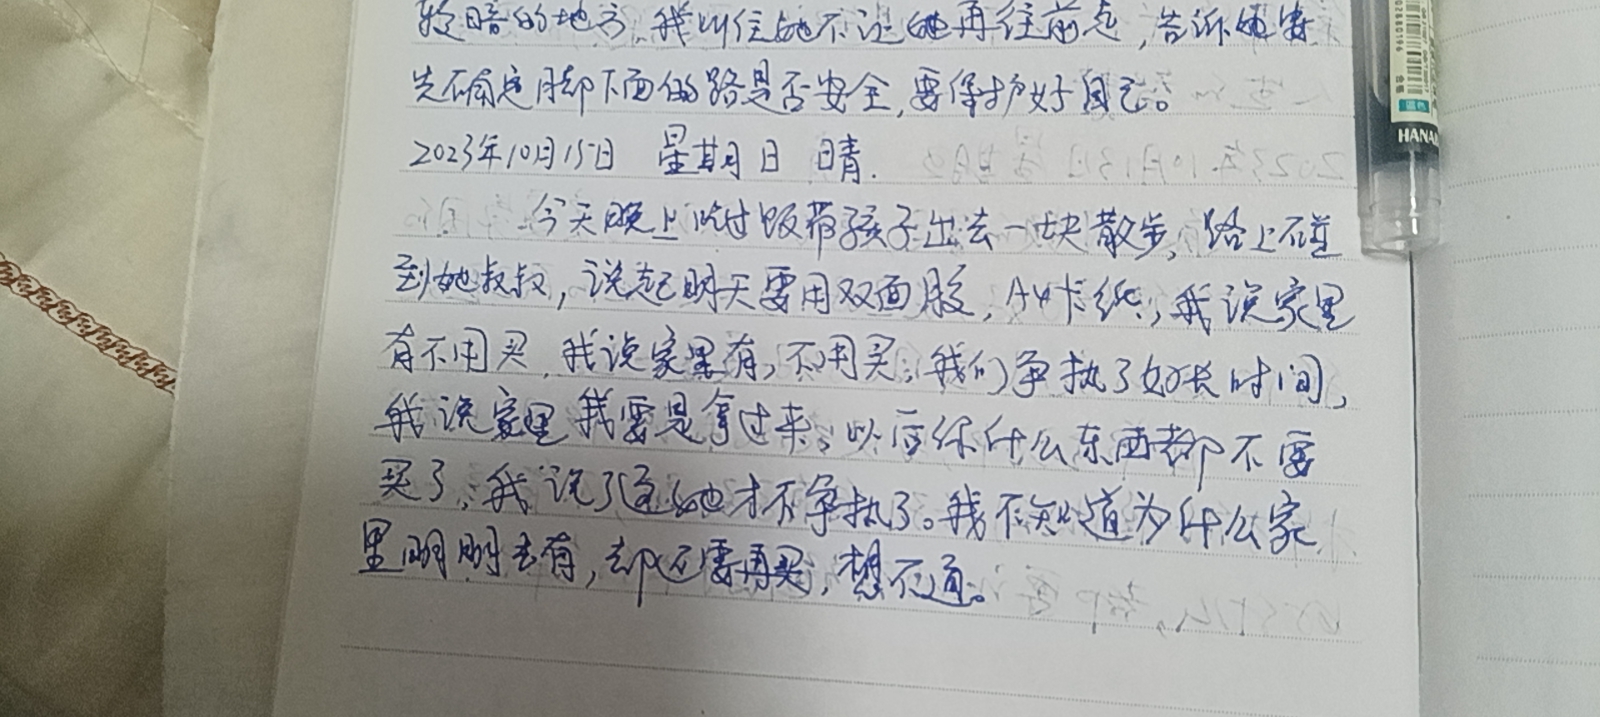 较暗的地方,我叫住她不让她再往前走,告诉她要
先确定脚下面的路是否安全,要保护好自己。
2023年10月15日 星期日 晴.
今天晚上吃过饭带孩子出去一块散步,路上碰
到她叔叔,说起明天要用双面胶,A4卡纸,我说家里
有不用买,我说家里有,不用买,我们争执了好长时间,
我说家里我要是拿过来,以后你什么东西都不要
买了,我说了这她才不争执了。我不知道为什么家
里明明有,却还要再买,想不通。
HANA